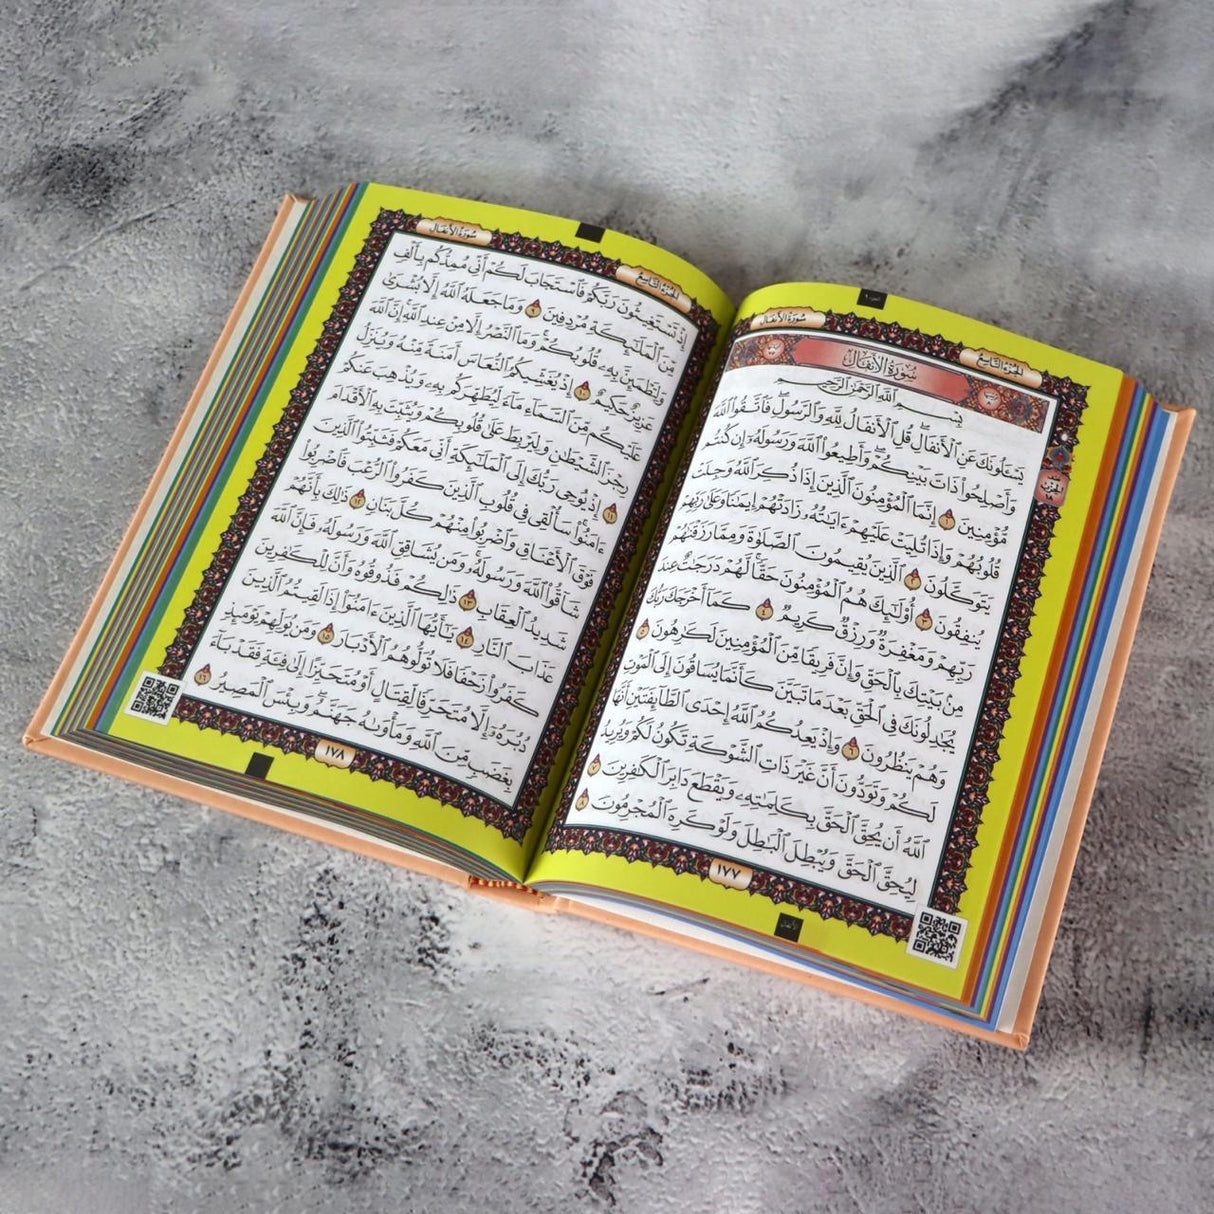 سُورَةُ الأَنفَالِ
الجُزءُ التَّاسِعُ
سُورَةُ الأَنفَالِ
بِسْمِ ٱللَّهِ ٱلرَّحْمَٰنِ ٱلرَّحِيمِ
يَسْـَٔلُونَكَ عَنِ ٱلْأَنفَالِ ۖ قُلِ ٱلْأَنفَالُ لِلَّهِ وَٱلرَّسُولِ ۖ فَٱتَّقُوا۟ ٱللَّهَ
وَأَصْلِحُوا۟ ذَاتَ بَيْنِكُمْ ۖ وَأَطِيعُوا۟ ٱللَّهَ وَرَسُولَهُۥٓ إِن كُنتُم
مُّؤْمِنِينَ ١ إِنَّمَا ٱلْمُؤْمِنُونَ ٱلَّذِينَ إِذَا ذُكِرَ ٱللَّهُ وَجِلَتْ
قُلُوبُهُمْ وَإِذَا تُلِيَتْ عَلَيْهِمْ ءَايَٰتُهُۥ زَادَتْهُمْ إِيمَٰنًا وَعَلَىٰ رَبِّهِمْ
يَتَوَكَّلُونَ ٢ ٱلَّذِينَ يُقِيمُونَ ٱلصَّلَوٰةَ وَمِمَّا رَزَقْنَٰهُمْ
يُنفِقُونَ ٣ أُو۟لَٰٓئِكَ هُمُ ٱلْمُؤْمِنُونَ حَقًّا ۚ لَّهُمْ دَرَجَٰتٌ عِندَ
رَبِّهِمْ وَمَغْفِرَةٌ وَرِزْقٌ كَرِيمٌ ٤ كَمَآ أَخْرَجَكَ رَبُّكَ
مِنۢ بَيْتِكَ بِٱلْحَقِّ وَإِنَّ فَرِيقًا مِّنَ ٱلْمُؤْمِنِينَ لَكَٰرِهُونَ ٥
يُجَٰدِلُونَكَ فِى ٱلْحَقِّ بَعْدَ مَا تَبَيَّنَ كَأَنَّمَا يُسَاقُونَ إِلَى ٱلْمَوْتِ
وَهُمْ يَنظُرُونَ ٦ وَإِذْ يَعِدُكُمُ ٱللَّهُ إِحْدَى ٱلطَّآئِفَتَيْنِ أَنَّهَا
لَكُمْ وَتَوَدُّونَ أَنَّ غَيْرَ ذَاتِ ٱلشَّوْكَةِ تَكُونُ لَكُمْ وَيُرِيدُ
ٱللَّهُ أَن يُحِقَّ ٱلْحَقَّ بِكَلِمَٰتِهِۦ وَيَقْطَعَ دَابِرَ ٱلْكَٰفِرِينَ ٧
لِيُحِقَّ ٱلْحَقَّ وَيُبْطِلَ ٱلْبَٰطِلَ وَلَوْ كَرِهَ ٱلْمُجْرِمُونَ ٨
١٧٧
الأنفال
سُورَةُ الأَنفَالِ
الجُزءُ التَّاسِعُ
إِذْ تَسْتَغِيثُونَ رَبَّكُمْ فَٱسْتَجَابَ لَكُمْ أَنِّى مُمِدُّكُم بِأَلْفٍ
مِّنَ ٱلْمَلَٰٓئِكَةِ مُرْدِفِينَ ٩ وَمَا جَعَلَهُ ٱللَّهُ إِلَّا بُشْرَىٰ
وَلِتَطْمَئِنَّ بِهِۦ قُلُوبُكُمْ ۚ وَمَا ٱلنَّصْرُ إِلَّا مِنْ عِندِ ٱللَّهِ ۚ إِنَّ ٱللَّهَ
عَزِيزٌ حَكِيمٌ ١٠ إِذْ يُغَشِّيكُمُ ٱلنُّعَاسَ أَمَنَةً مِّنْهُ وَيُنَزِّلُ
عَلَيْكُم مِّنَ ٱلسَّمَآءِ مَآءً لِّيُطَهِّرَكُم بِهِۦ وَيُذْهِبَ عَنكُمْ
رِجْزَ ٱلشَّيْطَٰنِ وَلِيَرْبِطَ عَلَىٰ قُلُوبِكُمْ وَيُثَبِّتَ بِهِ ٱلْأَقْدَامَ
١١ إِذْ يُوحِى رَبُّكَ إِلَى ٱلْمَلَٰٓئِكَةِ أَنِّى مَعَكُمْ فَثَبِّتُوا۟ ٱلَّذِينَ
ءَامَنُوا۟ ۚ سَأُلْقِى فِى قُلُوبِ ٱلَّذِينَ كَفَرُوا۟ ٱلرُّعْبَ فَٱضْرِبُوا۟
فَوْقَ ٱلْأَعْنَاقِ وَٱضْرِبُوا۟ مِنْهُمْ كُلَّ بَنَانٍ ١٢ ذَٰلِكَ بِأَنَّهُمْ
شَآقُّوا۟ ٱللَّهَ وَرَسُولَهُۥ ۚ وَمَن يُشَاقِقِ ٱللَّهَ وَرَسُولَهُۥ فَإِنَّ ٱللَّهَ
شَدِيدُ ٱلْعِقَابِ ١٣ ذَٰلِكُمْ فَذُوقُوهُ وَأَنَّ لِلْكَٰفِرِينَ
عَذَابَ ٱلنَّارِ ١٤ يَٰٓأَيُّهَا ٱلَّذِينَ ءَامَنُوٓا۟ إِذَا لَقِيتُمُ ٱلَّذِينَ
كَفَرُوا۟ زَحْفًا فَلَا تُوَلُّوهُمُ ٱلْأَدْبَارَ ١٥ وَمَن يُوَلِّهِمْ يَوْمَئِذٍ
دُبُرَهُۥٓ إِلَّا مُتَحَرِّفًا لِّقِتَالٍ أَوْ مُتَحَيِّزًا إِلَىٰ فِئَةٍ فَقَدْ بَآءَ
بِغَضَبٍ مِّنَ ٱللَّهِ وَمَأْوَىٰهُ جَهَنَّمُ ۖ وَبِئْسَ ٱلْمَصِيرُ ١٦
١٧٨